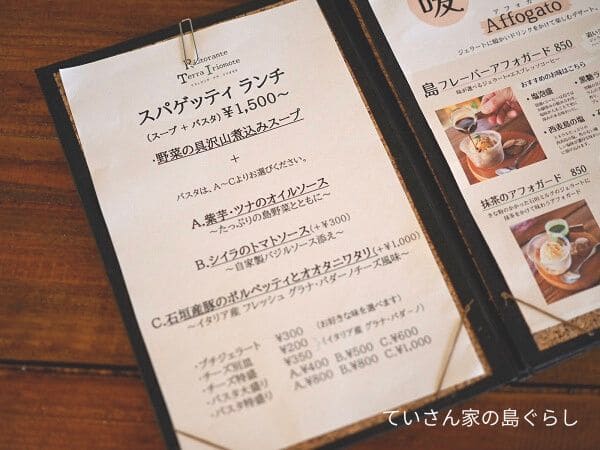 Ristorante
Terra Iriomote
スパゲッティ ランチ
(スープ + パスタ) ¥1,500～
・野菜の具沢山煮込みスープ
+
パスタは、A～Cよりお選びください。
A.紫芋・ツナのオイルソース
～たっぷりの島野菜とともに～
B.シイラのトマトソース(+¥300)
～自家製バジルソース添え～
C.石垣産豚のポルペッティとオオタニワタリ(+¥1,000)
～イタリア産 フレッシュ グラナ・パダーノチーズ風味～
・プチジェラート ¥300 (お好きな味を選べます)
・チーズ別皿 ¥200 (イタリア産 グラナ・パダーノ)
・チーズ特盛 ¥350
・パスタ大盛り A.¥400 B.¥500 C.¥600
・パスタ特盛り A.¥800 B.¥800 C.¥1,000
暖
アフォガ
Affogato
ジェラートに暖かいドリンクをかけて楽しむデザート。
島 フレーバーアフォガード 850
味が選べるジェラート+エスプレッソコーヒー
おすすめのお味はこちら
・塩泡盛
・黒糖
・西表島の塩
抹茶のアフォガード 850
きな粉のかかったお餅とミルクのジェラートに
抹茶をかけて味わうアフォガード
ていさん家の島ぐらし